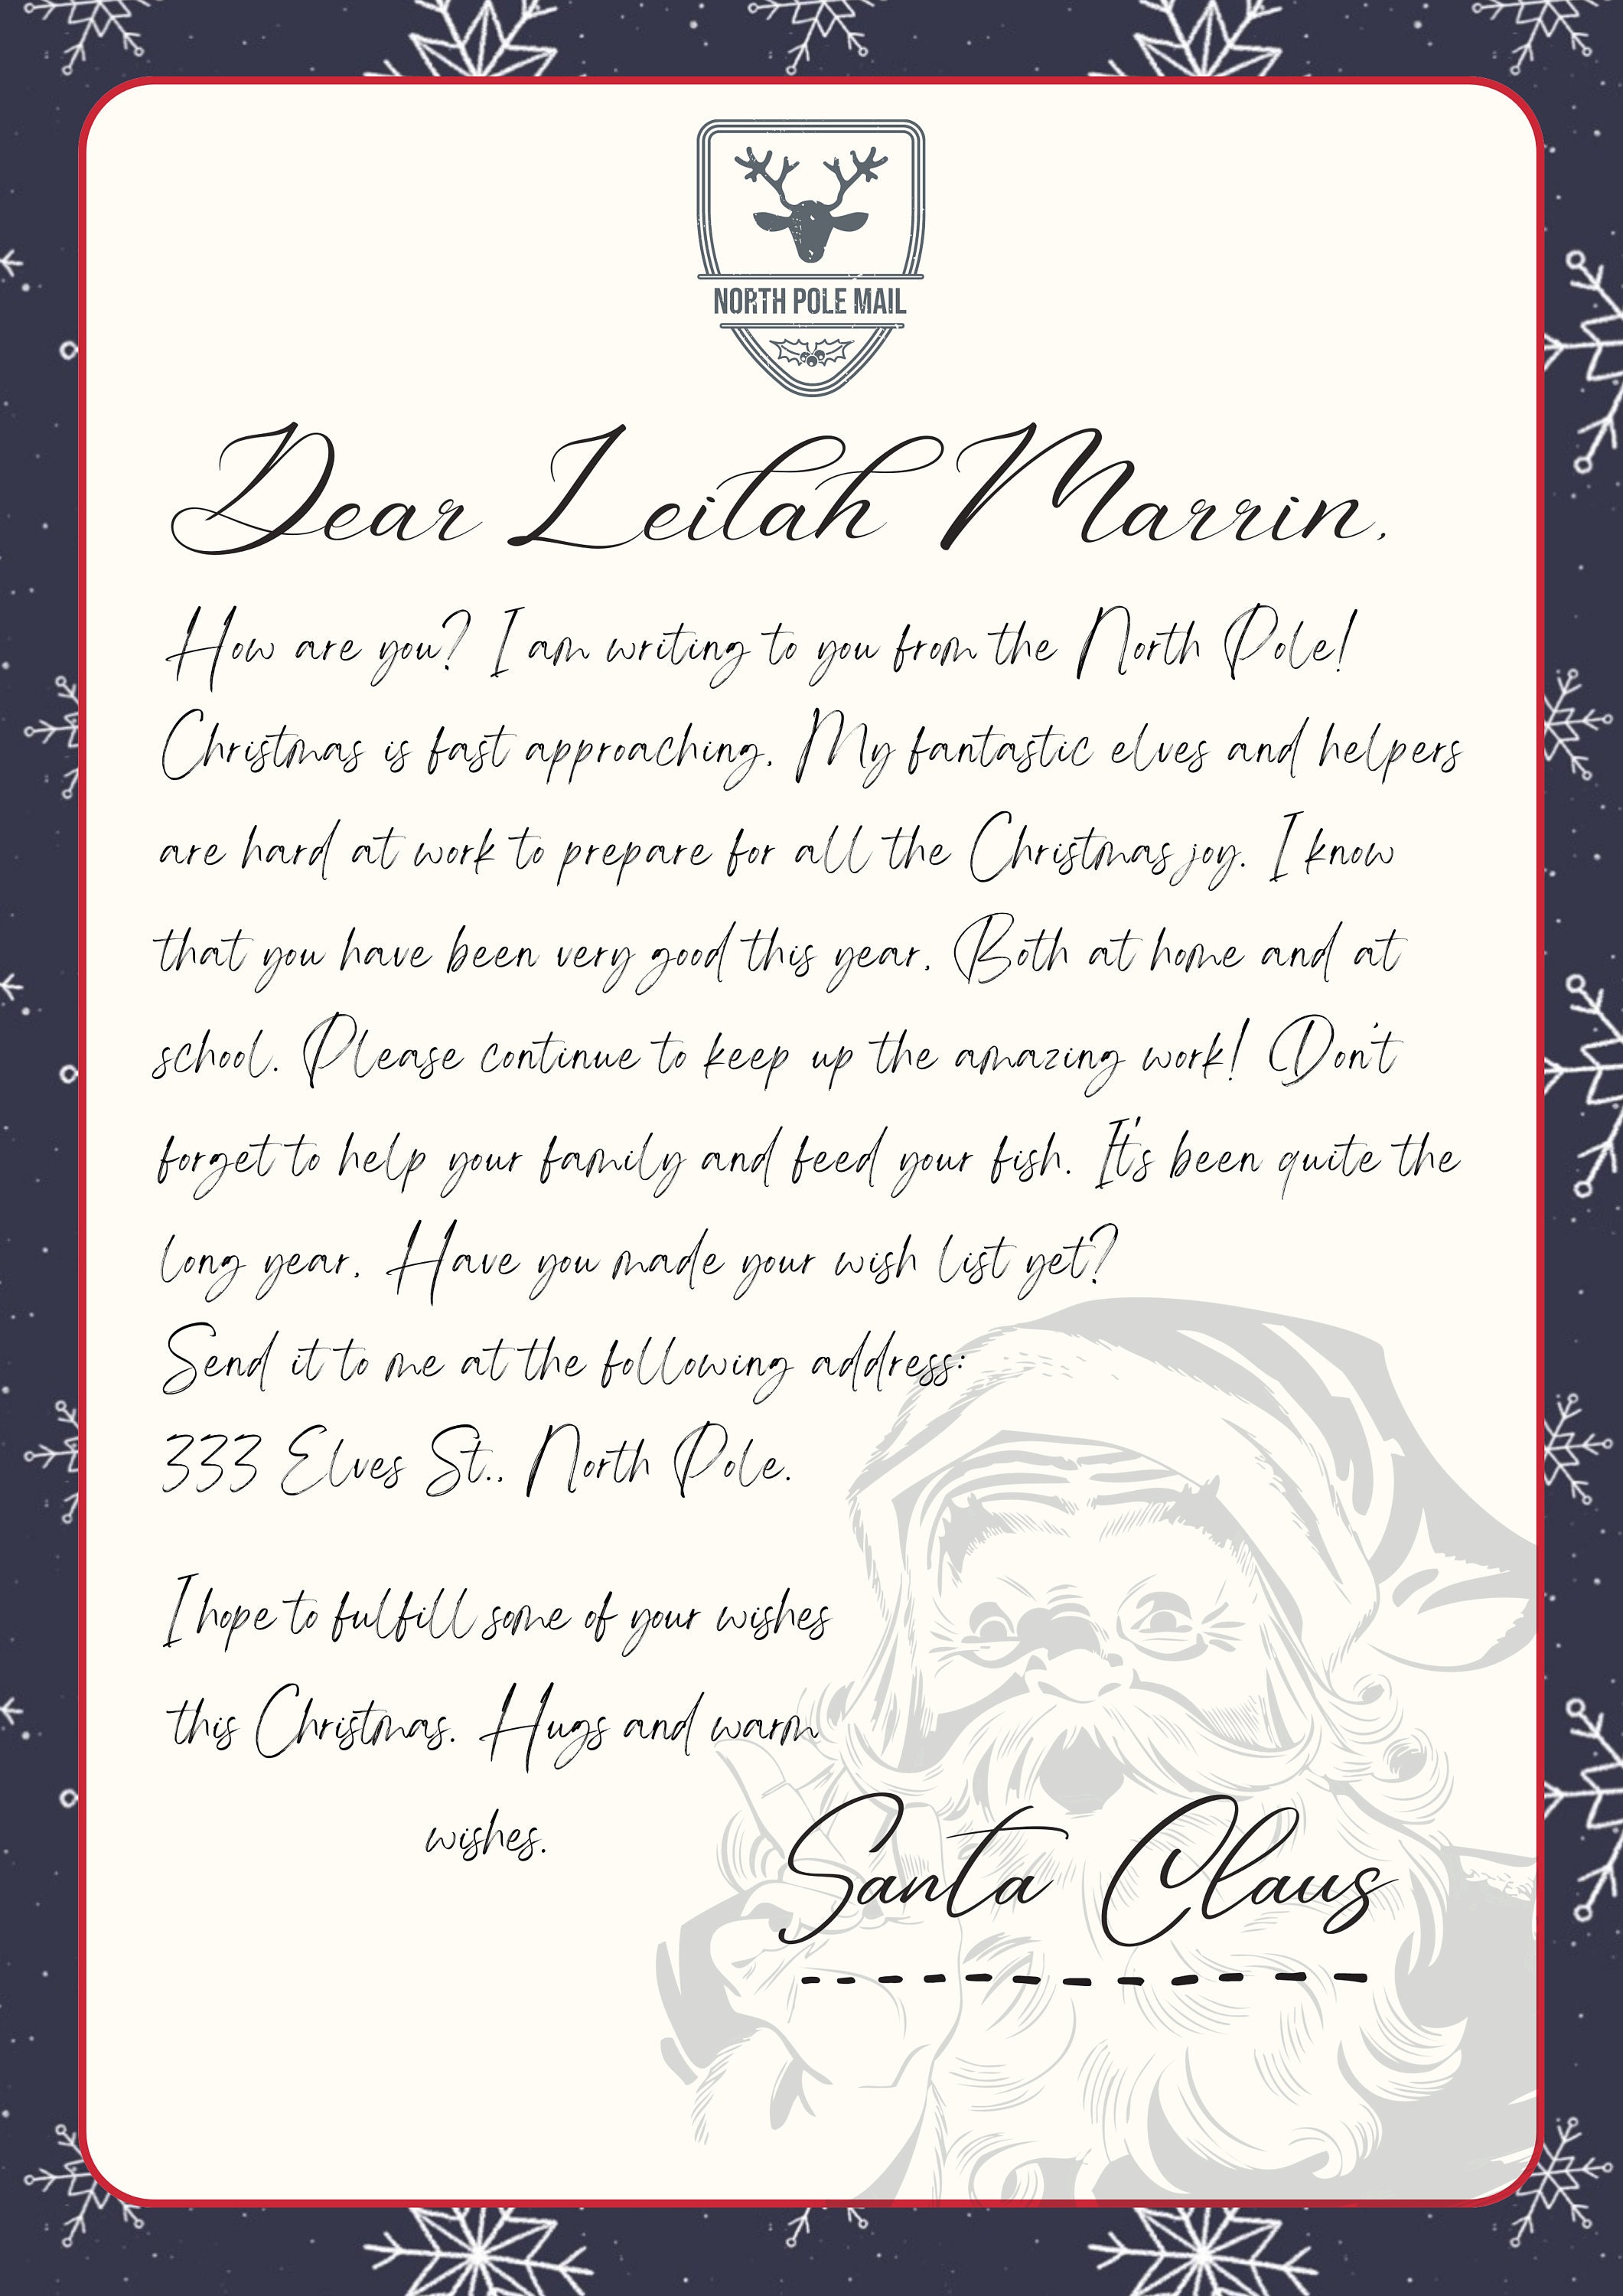 NORTH POLE MAIL
Dear Leilah Marrin,
How are you? I am writing to you from the North Pole!
Christmas is fast approaching. My fantastic elves and helpers
are hard at work to prepare for all the Christmas joy. I know
that you have been very good this year. Both at home and at
school. Please continue to keep up the amazing work! Don't
forget to help your family and feed your fish. It's been quite the
long year. Have you made your wish list yet?
Send it to me at the following address:
333 Elves St., North Pole.
I hope to fulfill some of your wishes
this Christmas. Hugs and warm
wishes.
Santa Claus